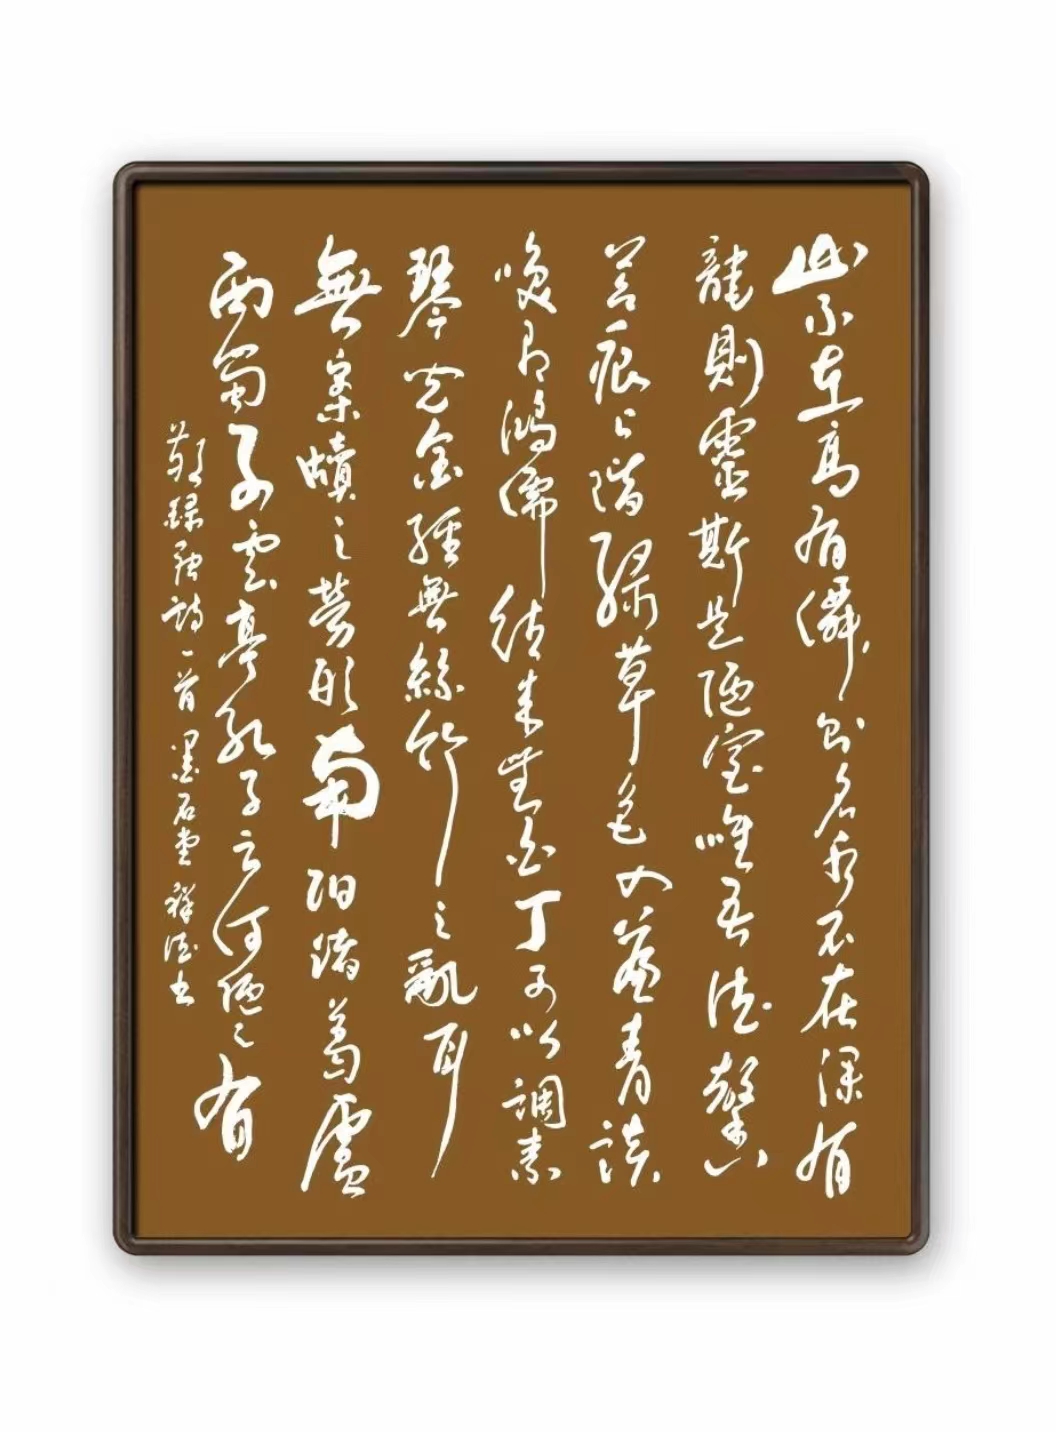 山不在高有僊則名水不在深有
龍則靈斯是陋室唯吾德馨
苔痕上階綠草色入簾青談
咲有鴻儒往來無白丁可以調素
琴閱金經無絲竹之亂耳
無案牘之勞形南陽諸葛廬
西蜀子雲亭孔子云何陋之有
敬録唐詩一首墨石堂祥德书